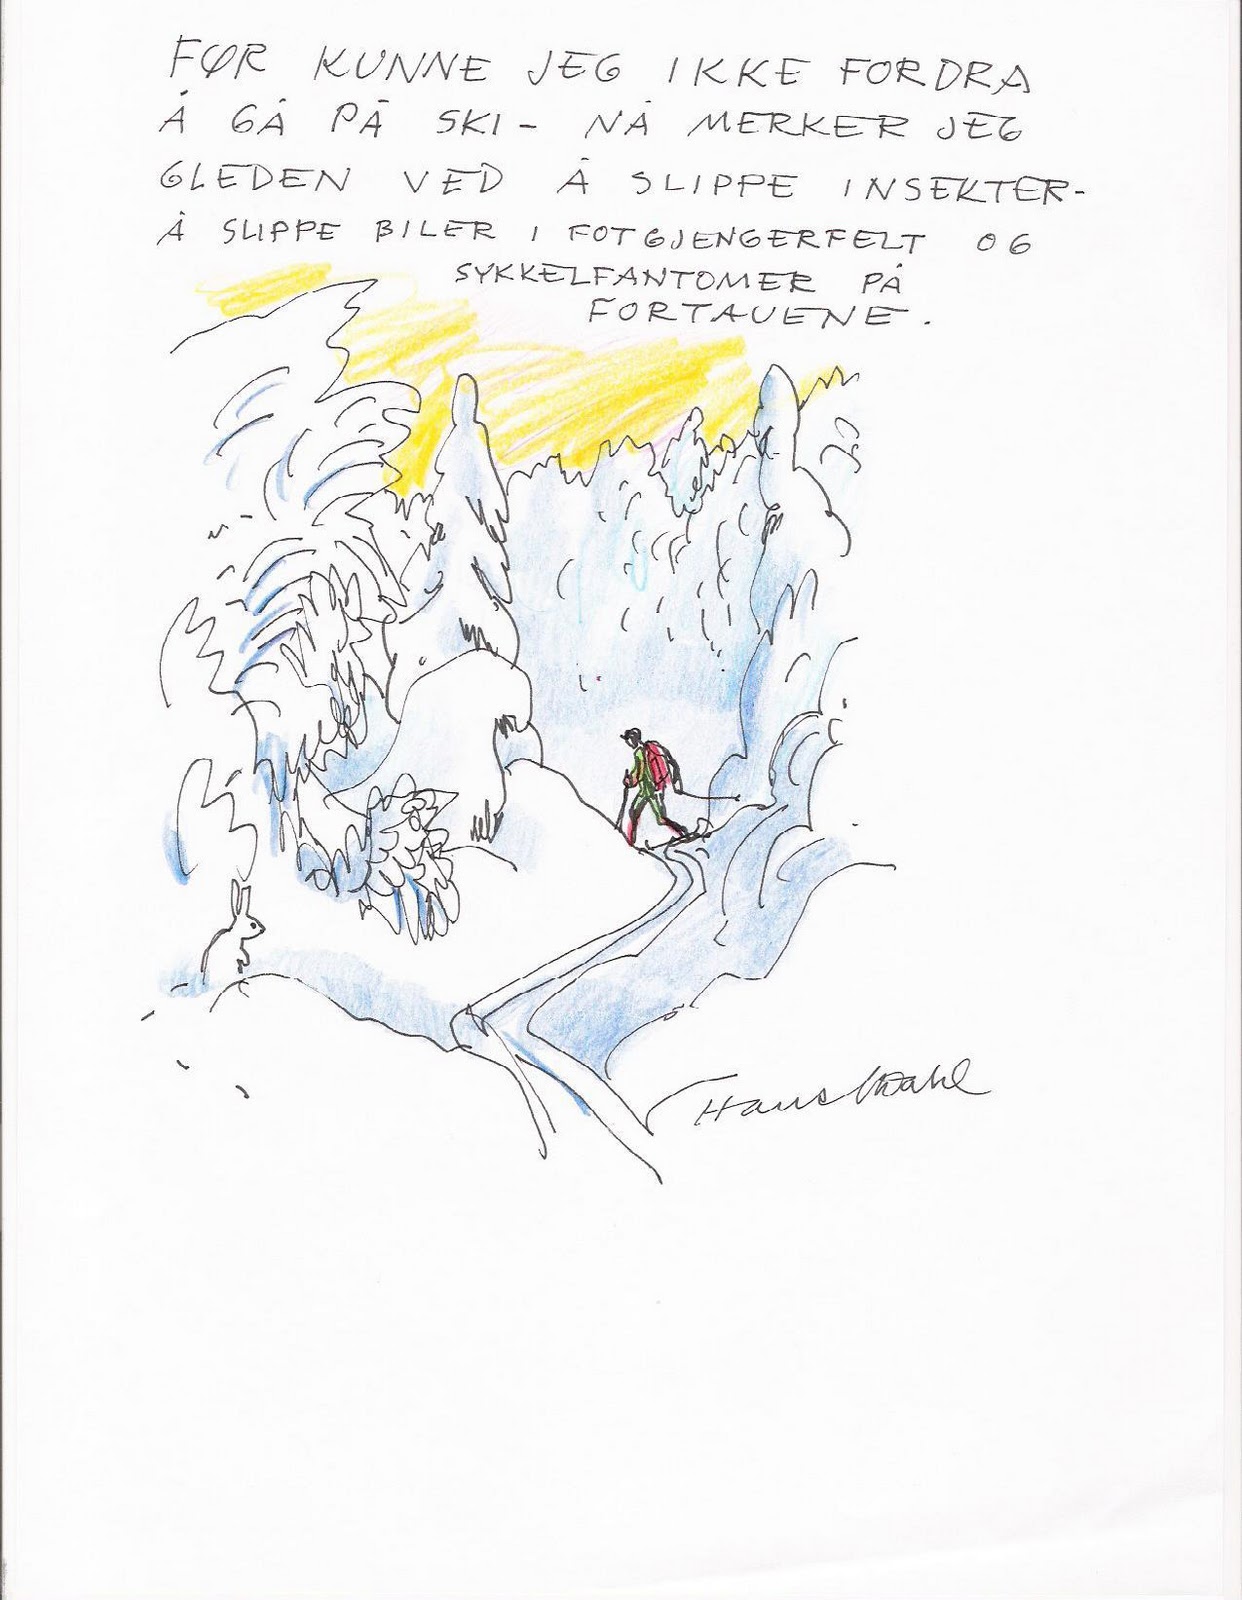 FØR KUNNE JEG IKKE FORDRA
Å GÅ PÅ SKI - NÅ MERKER JEG
GLEDEN VED Å SLIPPE INSEKTER-
Å SLIPPE BILER I FOTGJENGERFELT OG
SYKKELFANTOMER PÅ
FORTAUENE.
Hans